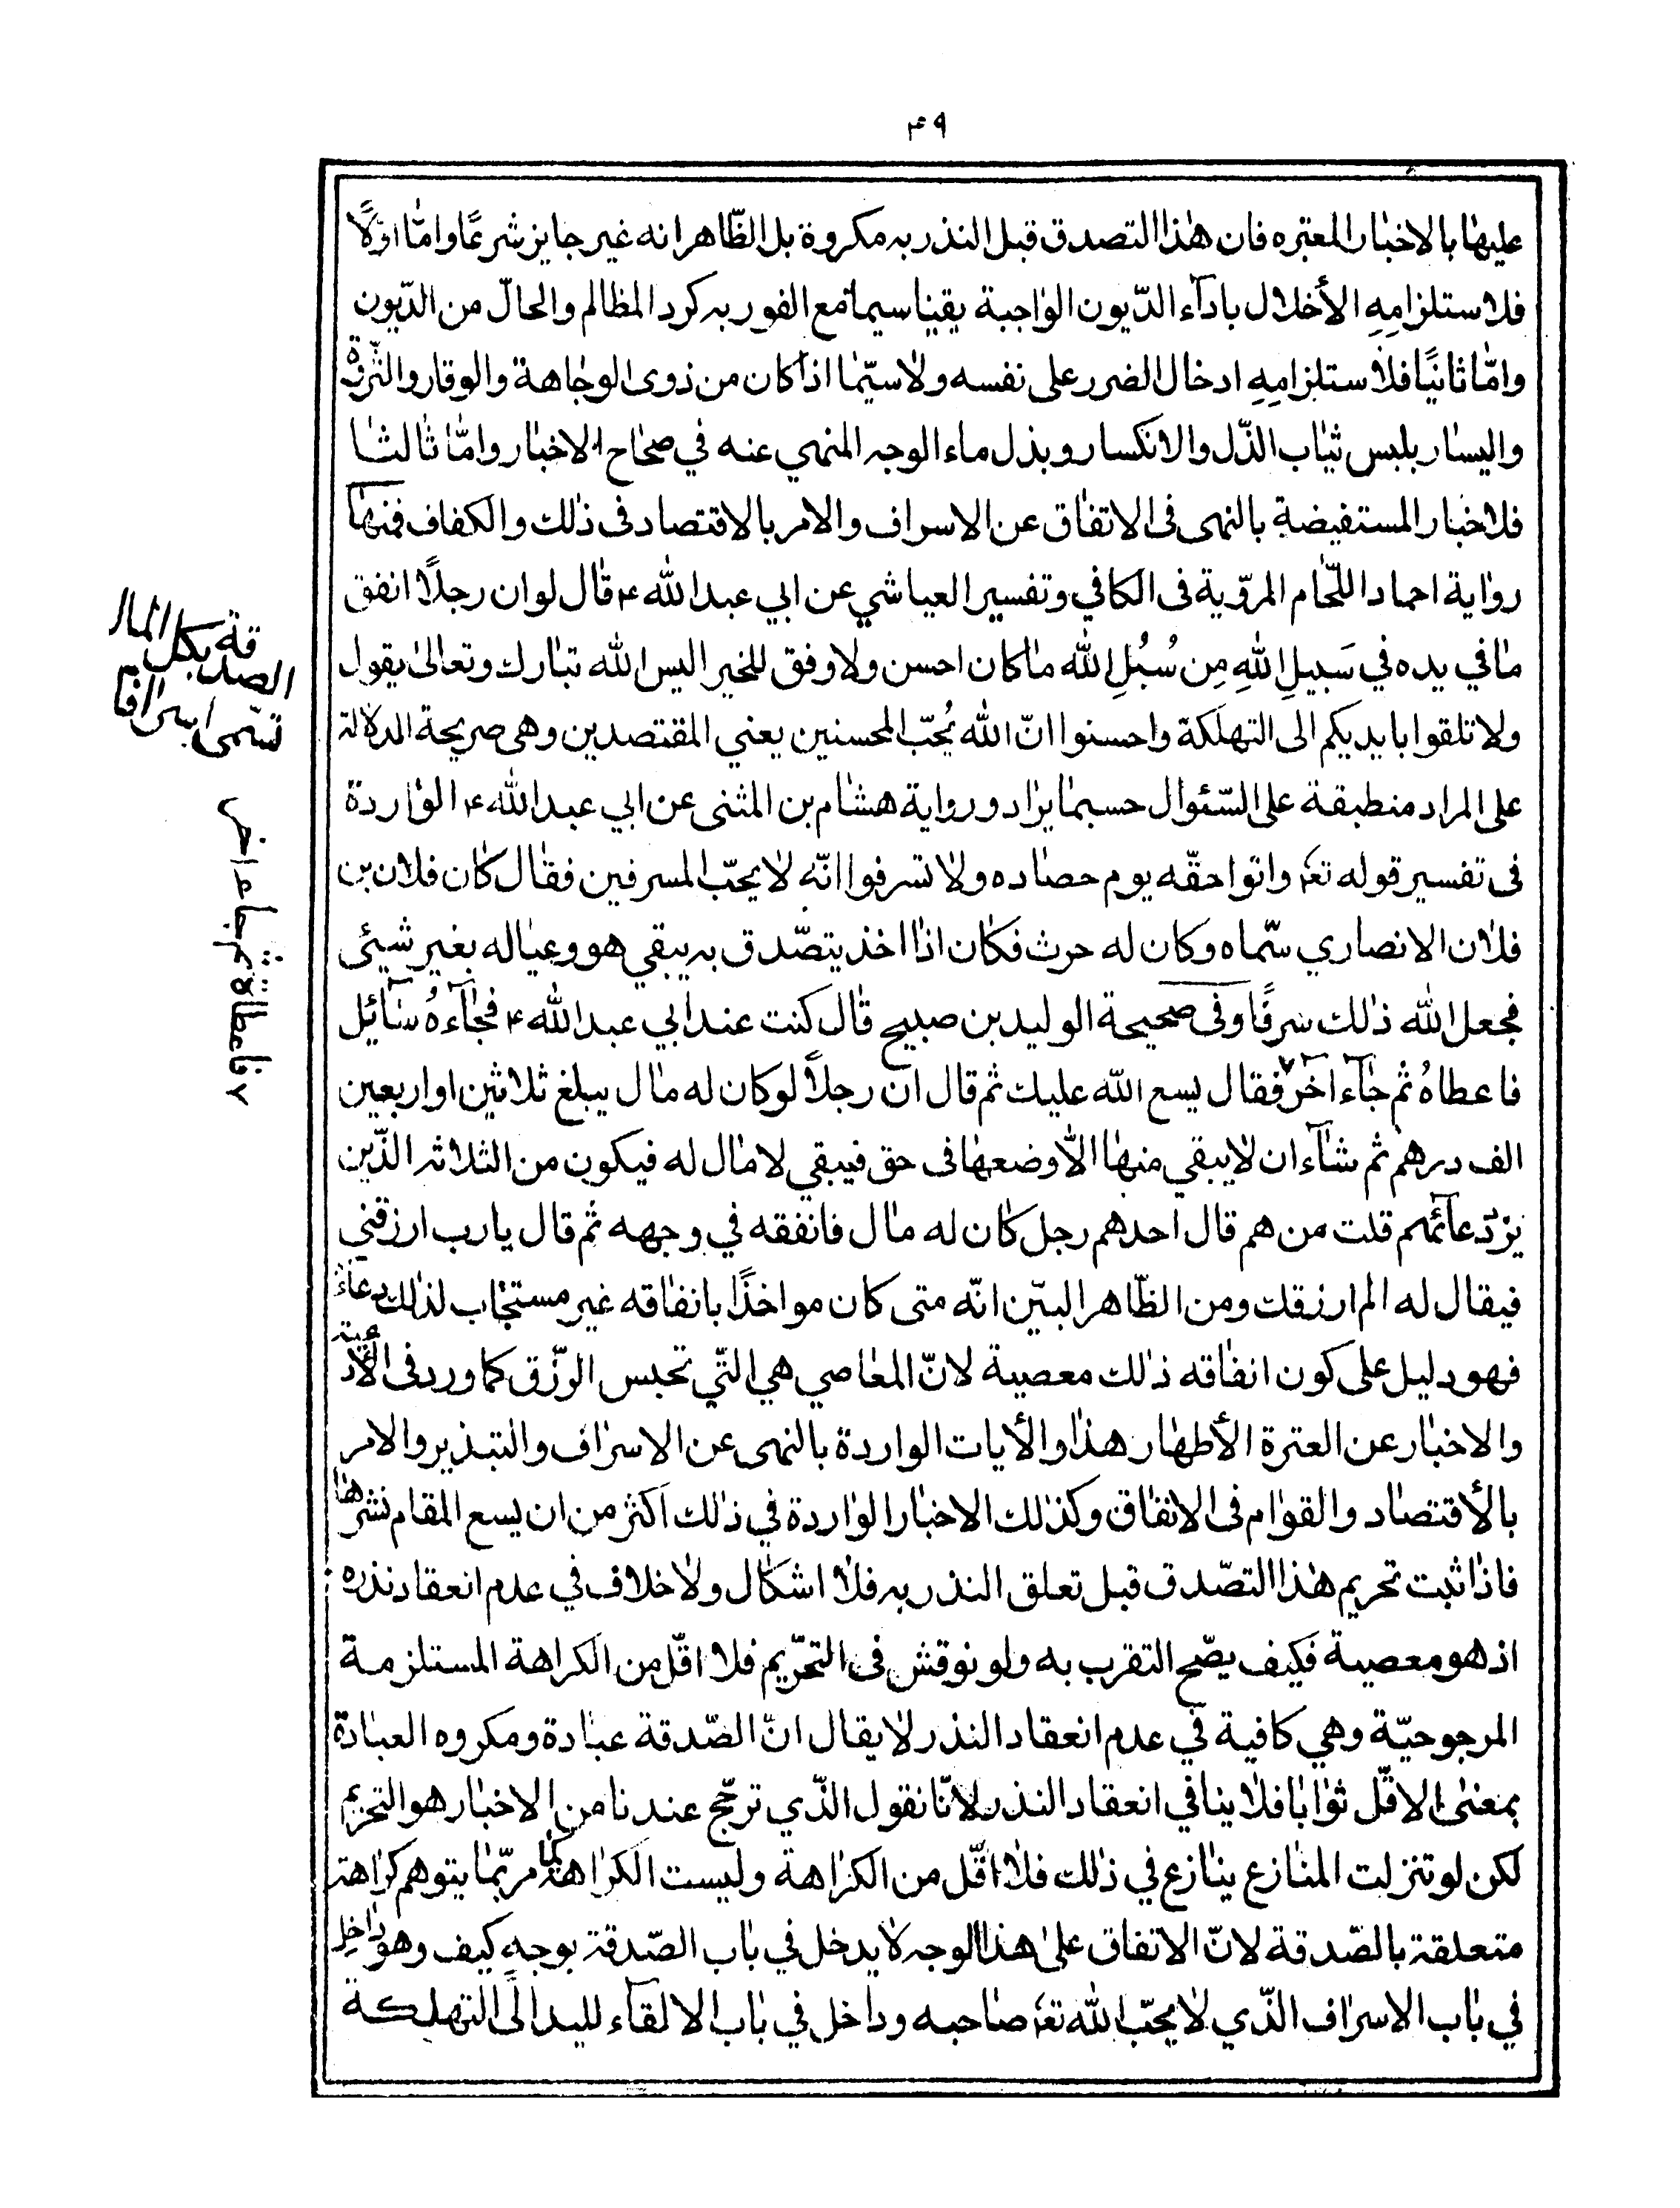 ۴۹
عليهٰا بالاخبٰار المعتبره فان هٰذا التصدق قبل النذر به مكروة بل الظّاهر انه غير جايز شرعًا وامّٰا اوّلًا
فلاستلزامِهِ الأخلال بادآء الدّيون الوٰاجبة يقينا سيما مع الفور به كرد المظالم والحالّ من الدّيون
وامّٰا ثانيًا فلاستلزامِهِ ادخال الضرر على نفسه ولاسيّما اذا كان من ذوى الوجٰاهة والوقار والثّروة
واليسٰار بلبس ثيٰاب الذّل والانكسار وبذل ماء الوجه المنهي عنه في صحٰاح الاخبٰار وامّٰا ثٰالثٰا
فلاخبٰار المستفيضة بالنهى فى الاتفٰاق عن الاسراف والامر بالاقتصاد فى ذٰلك والكفاف فمنهٰا
روٰاية احماد اللحّام المرّوية فى الكافي وتفسير العياشي عن ابي عبد الله ۴ قٰال لو ان رجلًا انفق
مٰا في يده في سَبيلِ اللهِ مِن سُبُلِ الله مٰا كان احسن ولا وفق للخير اليس الله تبٰارك وتعالىٰ يقول
ولا تلقوا بايديكم الى التهلكة واحسنوا انّ الله يُحبّ المحسنين يعني المقتصدين وهى صريحة الدلالة
على المراد منطبقة على السّئوال حسبمٰا يرٰاد ورواية هشٰام بن المثنى عن ابي عبد الله ۴ الوٰاردة
فى تفسير قوله تعٰ واتوا حقّه يوم حصٰاده ولا تسرفوا انّه لا يحبّ المسرفين فقٰال كٰان فلان بن
فلان الانصاري سمّاه وكان له حرث فكٰان اذٰا اخذ يتصّدق به يبقي هو وعيٰاله بغير شيئى
فجعل الله ذٰلك سرفًا وفى صحيحة الوليد بن صبيح قٰال كنت عند ابي عبد الله ۴ فجٰآءهُ سٰآئيل
فاعطاهُ ثم جٰآء آخر۷ فقال يسع الله عليك ثم قال ان رجلاً لو كان له مٰال يبلغ ثلاثين او اربعين
الف درهم ثم شٰآء ان لا يبقي منهٰا الّا وضعهٰا فى حق فيبقي لا مٰال له فيكون من الثلاثه الذّين
يردّ دعآئهم قلت من هم قال احدهم رجل كٰان له مٰال فانفقه في وجهه ثم قال يا رب ارزقني
فيقال له الم ارزقك ومن الظّاهر البيّن انّه متى كان مواخذًا بانفٰاقه غير مستجٰاب لذٰلك دعآءه
فهو دليل على كون انفٰاقه ذٰلك معصية لانّ المعٰاصي هي التّي تحبس الرّزق كما ورد فى الأدعية
والاخبٰار عن العترة الأطهٰار هذٰا والأيات الواردة بالنهى عن الاسرٰاف والتبذير والامر
بالأقتصٰاد والقوٰام فى الانفٰاق وكذٰلك الاخبٰار الوٰاردة في ذٰلك اكثر من ان يسع المقام نشرهٰا
فاذٰا ثبت تحريم هٰذا التصّدق قبل تعلق النذر به فلا اشكٰال ولا خلاف في عدم انعقاد نذره
اذ هو معصية فكيف يصّح التقرب به ولو نوقش فى التحّريم فلا اقّل من الكراهة المستلزمة
المرجوحيّة وهي كافية في عدم انعقاد النذر لا يقال انّ الصّدقة عبٰادة ومكروه العبٰادة
بمعنىٰ الاقّل ثوٰابٰا فلا ينافي انعقاد النذر لانّا نقول الذّي ترجّح عندنا من الاخبٰار هو التحريم
لكن لو تنزلت المنٰازع ينٰازع في ذٰلك فلا اقّل من الكرٰاهة وليست الكرٰاهة كما مر ربّمٰا يتوهم كرٰاهة
متعلقة بالصّدقة لانّ الاتفاق علىٰ هذٰا الوجه لا يدخل في بٰاب الصّدقة بوجهٍ كيف وهو دٰاخِل
في بٰاب الاسرٰاف الذّي لا يحبّ الله تعٰ صٰاحبه ودٰاخل في بٰاب الالقٰآء لليد الى التهلكة
الصّدقة بكل المال
تسّمى اسرٰافا
۷ فاعطاه ثم جاء اخر